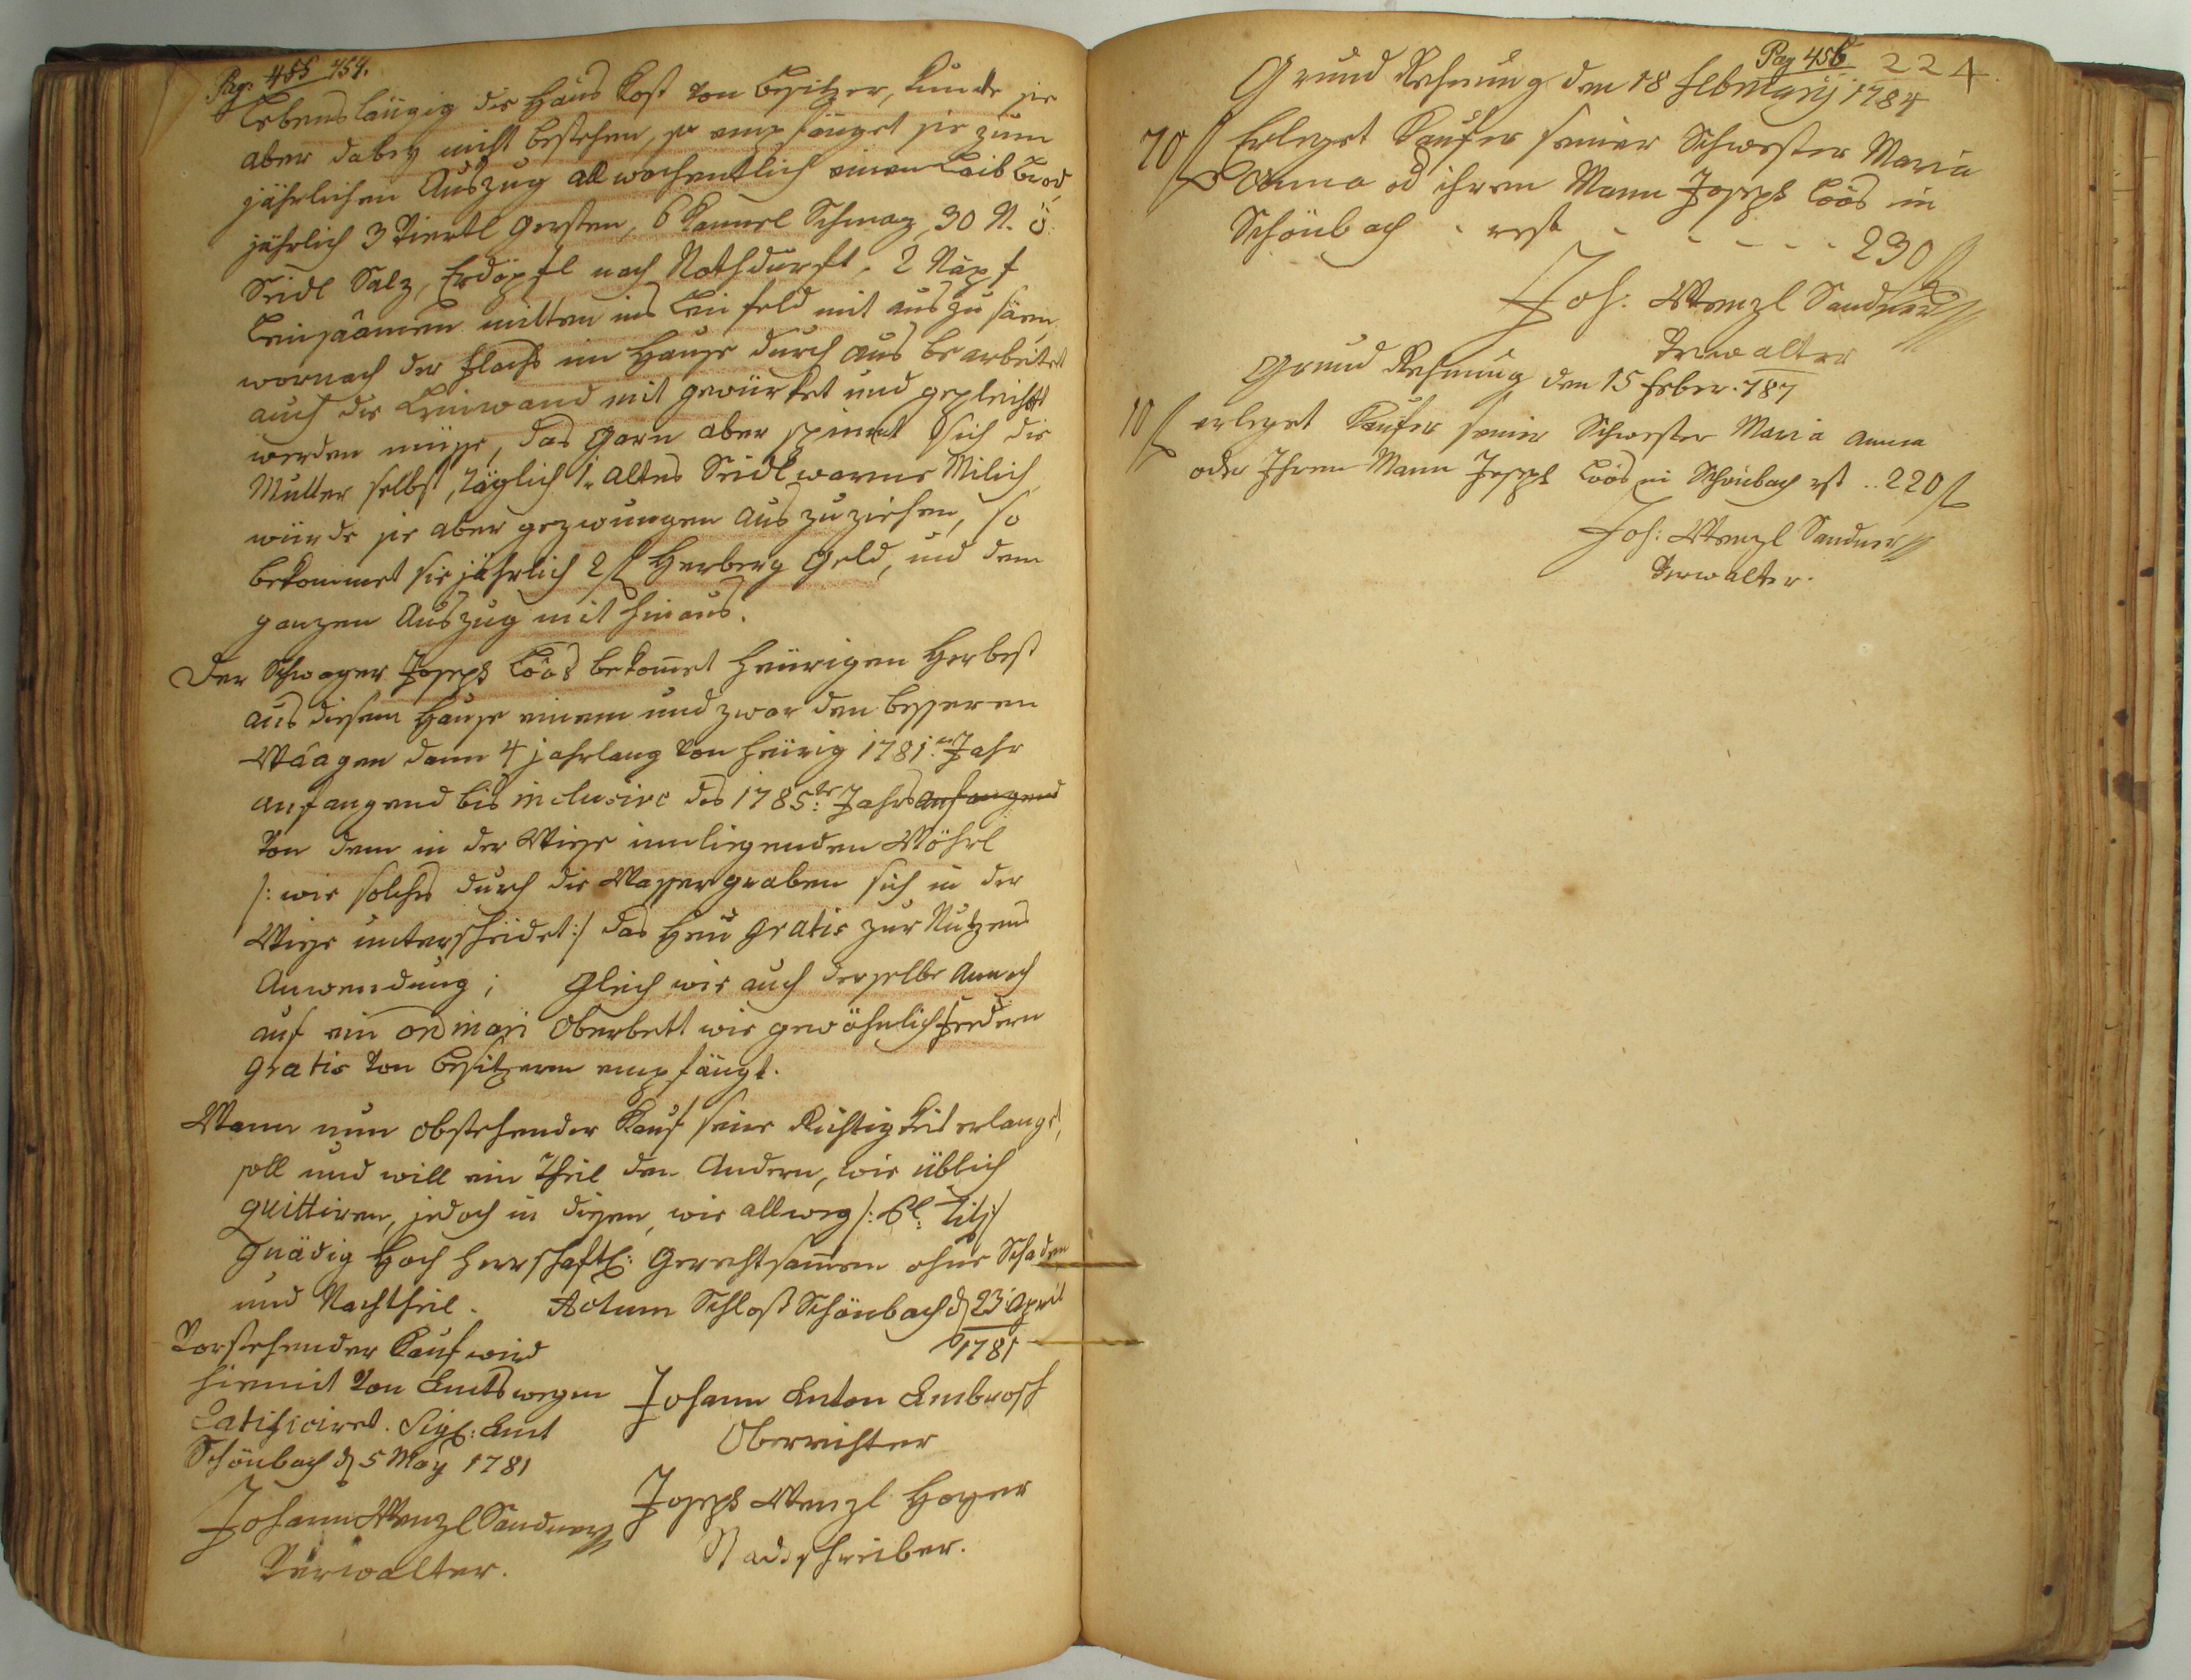 Pag: 455 454.
Lebenslängig die Haus Kost von Besitzer, kunde sie
aber dabey nicht bestehen, so empfänget sie zum
jährlichen Auszug allwochentlich einen Laib Brod
jährlich 3 Viertl Gersten, 6 Kannel Schmaz, 30 N. Ö.
Seidl Salz, Erdöpfl nach Nothdurft, 2 Näpf
Leinsaamen mitten ins Leinfeld mit auszusäen
wornach der Flachs im Hause durchaus bearbeitet
auch die Leinwand mit gewürket und gepleichet
werden müsse, das Garn aber spinnet sich die
Mutter selbst, täglich 1. altes Seidl warme Milich
würde sie aber gezwungen auszuziehen, so
bekommet sie jährlich 2 fl Herberg Geld, und dem
ganzen Auszug mit hinaus.
Der Schwager Joseph Löös bekomet heürigen Herbest
aus diesem Hause einem und zwar den besseren
Waagen dann 4 jahrlang von heürig 1781.en Jahr
anfangend bis inclusive des 1785.te Jahrs anfangend
von dem in der Wiese innliegenden Wöhrl
/: wie solches durch die Wassergraben sich in der
Wiese unterscheidet :/ das Heü gratis zur Nutzens
Anwendung; Gleich wie auch derselbe annoch
auf ein ordinari Oberbett wie gewöhnlich Federn
gratis von Besitzern empfängt.
Wann nun obstehender Kauf seine Richtigkeit erlanget,
soll und will ein Theil den Andern, wie üblich
quittiren, jedoch in diesen, wie allweg /: Pl: Titl :/
Gnädig Hoch Herrschaftl: Gerechtsamen ohne Schaden
und Nachtheil. Actum Schloß Schönbach d 23 April
1781
Vorstehender Kauf wird
hiemit von Amts wegen
Ratificiret. Sigl: Amt
Schönbach d 5 May 1781
Johann Wenzl Sandner
Verwalter.
Johann Anton Ambrosch
Oberrichter
Joseph Wenzl Hoyer
Stadtschreiber.
Pag 456 224.
Grund Rechnung den 18 Februarij 1784
70 fl Erleget Kaufer seiner Schwester Maria
Anna od ihren Mann Joseph Löös in
Schönbach . rest . . . . . 230 fl
Joh: Wenzl Sandner
Verwalter
Grund Rechnung den 15 Feber. 787
10 fl erleget Kaufer seiner Schwester Maria Anna
oder Ihren Mann Joseph Löös in Schönbach rst .. 220 fl
Joh: Wenzl Sandner
Verwalter.